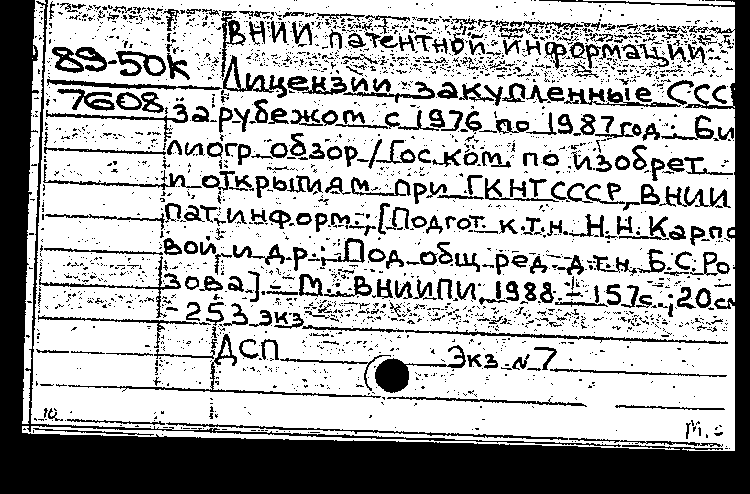 ВНИИ патентной информации
89-50к
Лицензии, закупленные СССР
7608
за рубежом с 1976 по 1987 год: Би
лиогр. обзор / Гос. ком. по изобрет.
и открытиям при ГКНТ СССР, ВНИИ
пат. информ.; [Подгот. к.т.н. Н.Н. Карпо
вой и др.; Под общ. ред. д.т.н. Б.С. Ро
зова]. - М.: ВНИИПИ, 1988. - 157с.; 20см
- 253 экз.
ДСП Экз. N 7
10